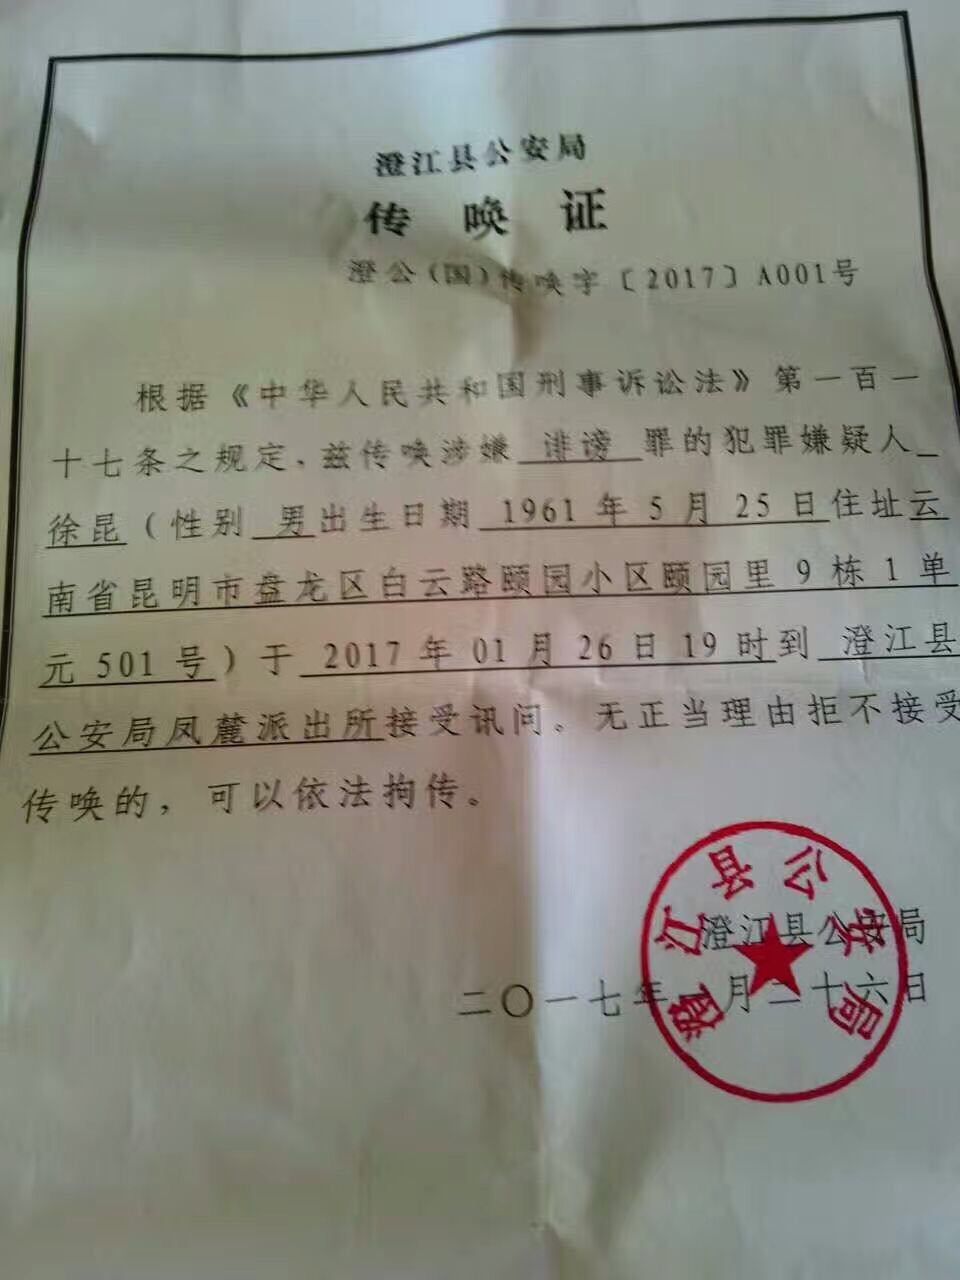 澄江县公安局
传唤证
澄公(国)传唤字〔2017〕A001号
根据《中华人民共和国刑事诉讼法》第一百一
十七条之规定,兹传唤涉嫌 诽谤 罪的犯罪嫌疑人
徐昆(性别 男出生日期 1961年5月25日住址云
南省昆明市盘龙区白云路颐园小区颐园里9栋1单
元501号)于 2017年01月26日19时到 澄江县
公安局凤麓派出所接受讯问。无正当理由拒不接受
传唤的,可以依法拘传。
澄江县公安局
二〇一七年一月二十六日
澄江县公安局